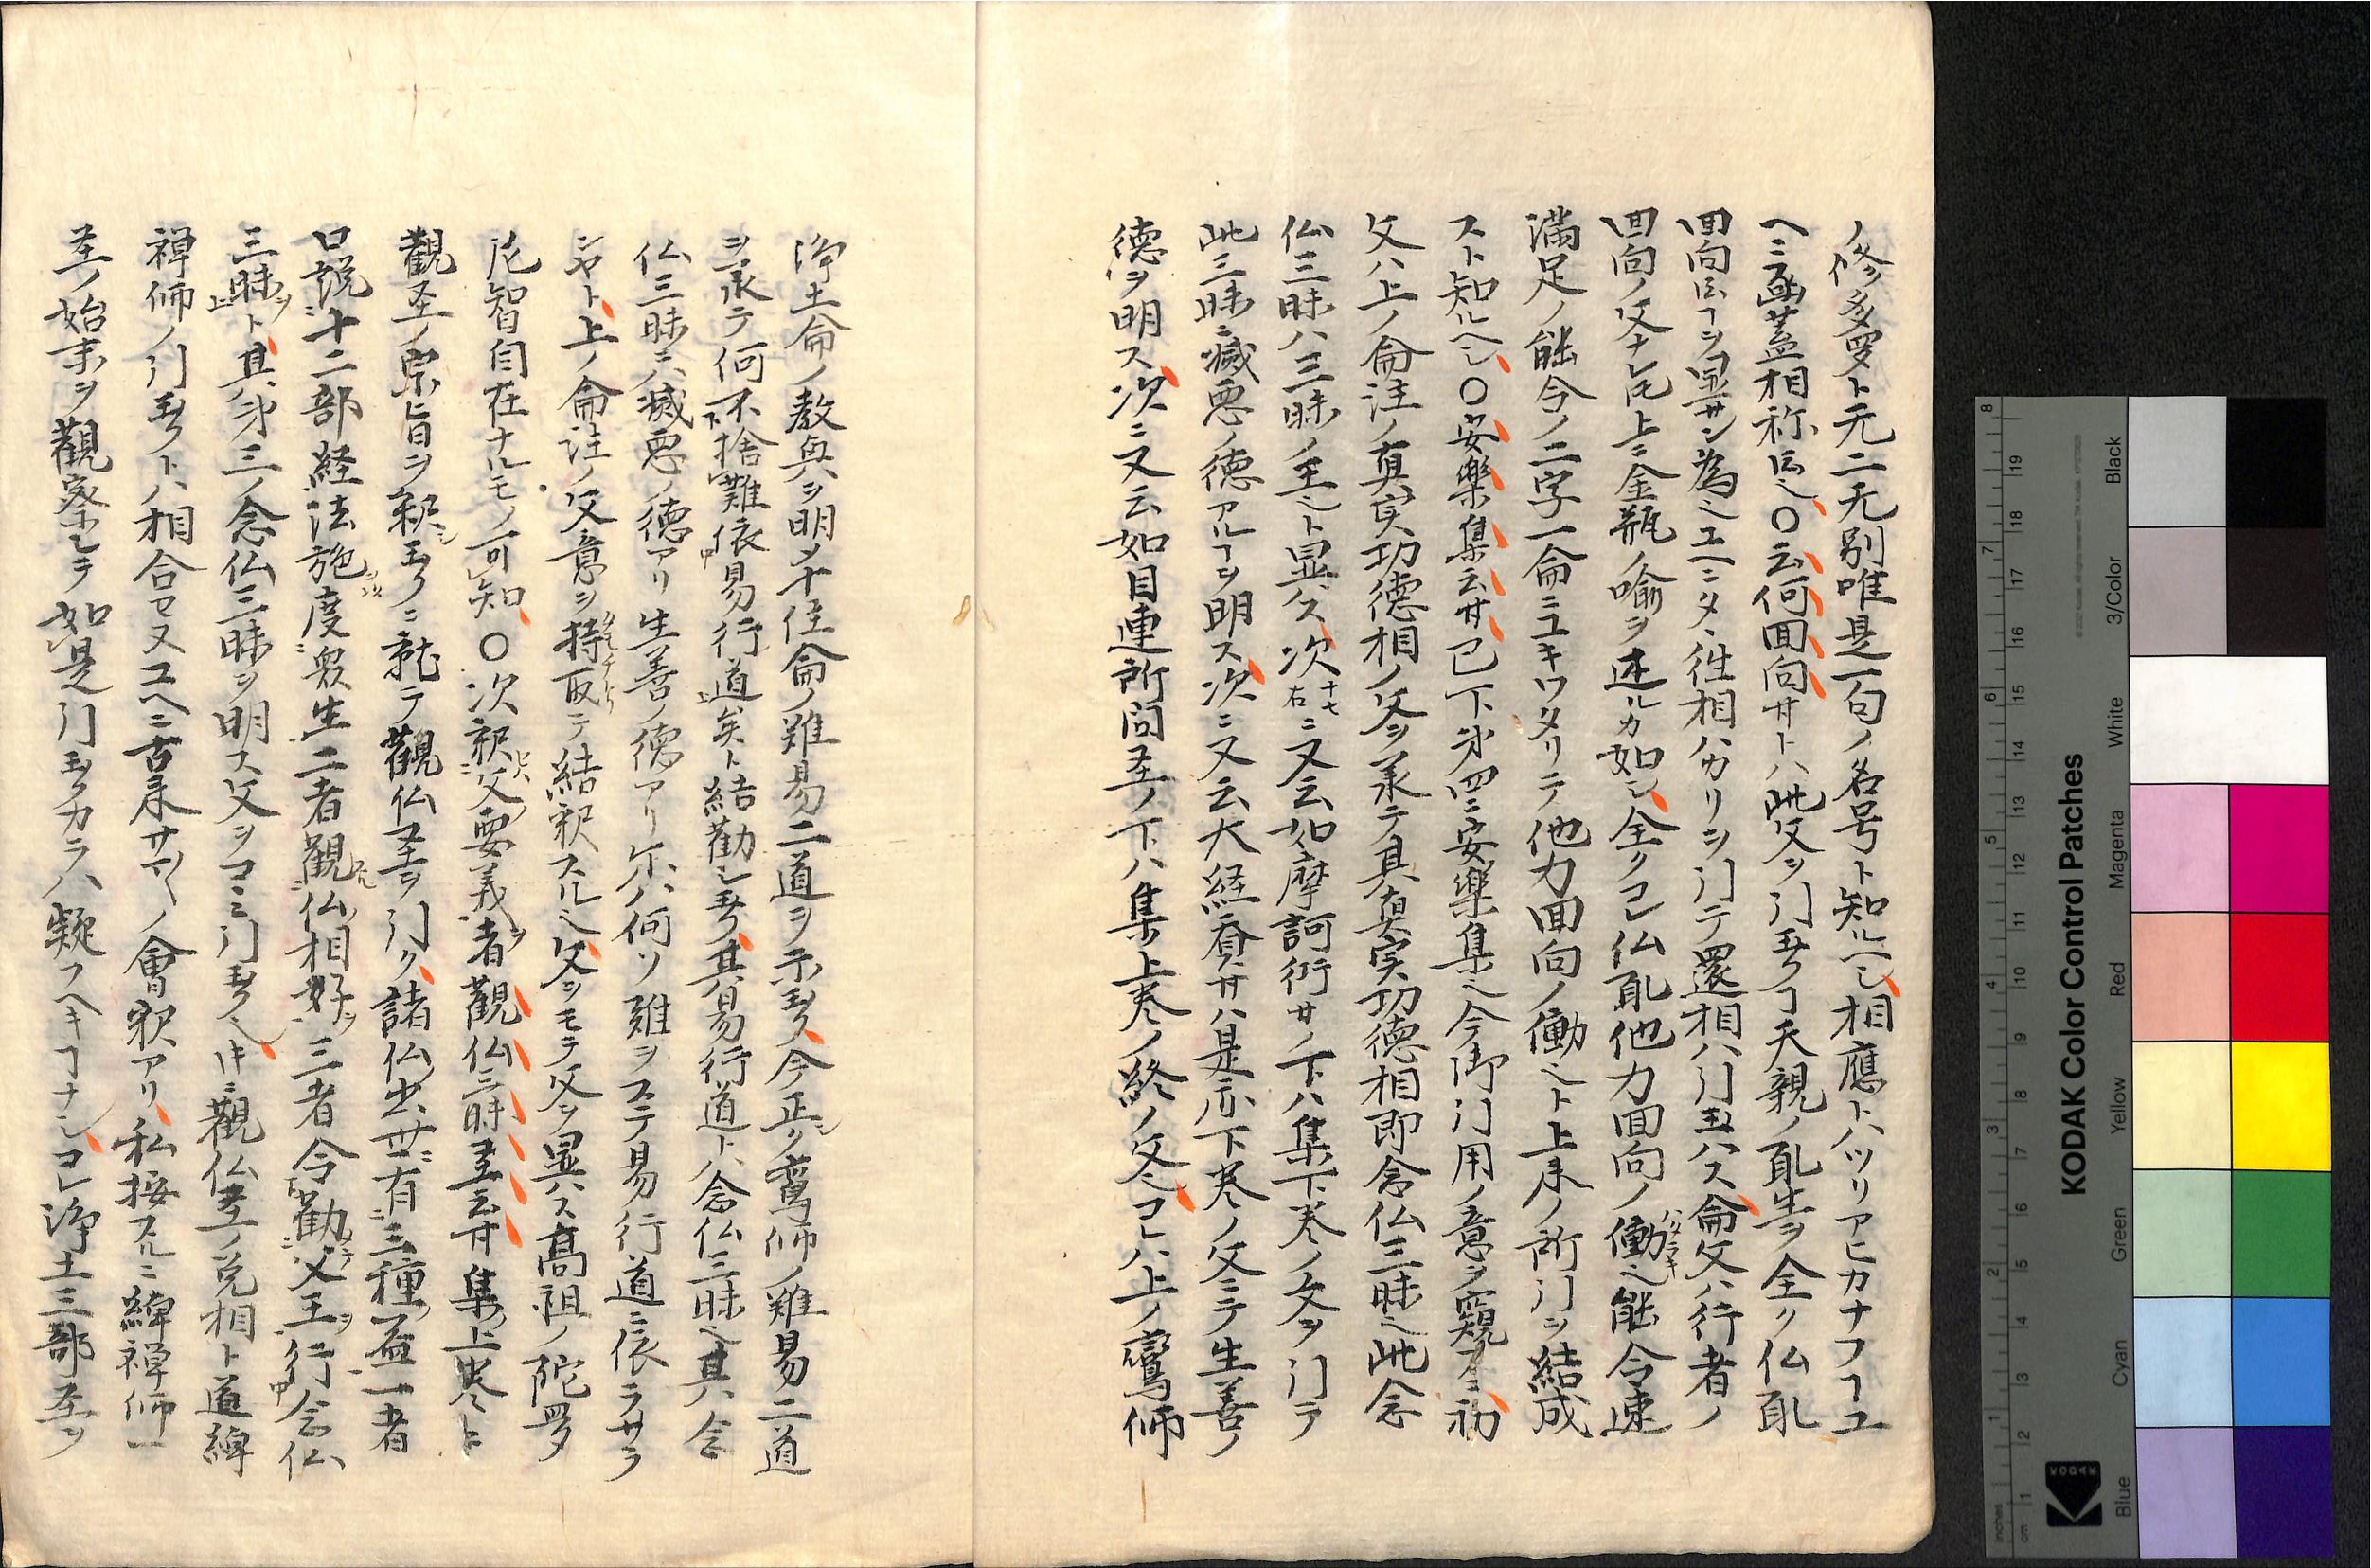 ノ修多羅ト元二无別唯是一句ノ名号ト知ルヘシ相應トハツリアヒカナフコユ
ヘニ函蓋相称ト云也〇云何回向等トハ此文ヲ引玉フコト天親ノ
回向ト云コトヲ显サン為也ユヘニタヽ往相ハカリヲ引テ還相ハ引玉ハス侖文ハ行者ノ
回向ノ文ナレトモ上ニ金瓶ノ喩ヲ述ルカ如シ全クコレ仏
他力回向ノ働也能令速
満足ノ能令ノ二字一侖ニユキワタリテ他力回向ノ働也ト上来ノ所引ヲ結成
スト知ルヘシ〇安楽集云等已下第四ニ安楽集也今御引用ノ意ヲ窺フニ初
文ハ上ノ侖注ノ真実功徳相ノ文ヲ承テ真実功徳相即念仏三昧也此念
仏三昧ハ三昧ノ王也ト显ス次十七右ニ又云如摩訶衍等ノ下ハ集下巻ノ文ヲ引テ
此三昧ニ滅悪ノ徳アルコトヲ明ス次ニ又云大経賛等ハ是亦下巻ノ文ニテ生善ノ
徳ヲ明ス次ニ又云如目連所問圣ノ下ハ集上巻ノ終ノ文也コレハ上ノ鸞師
浄土侖ノ教興ヲ明メ十住侖ノ難易二道ヲ示玉フ今正ク鸞師ノ難易二道
ヲ承テ何不捨難依易行道矣ト結勧シ玉フ其易行道トハ念仏三昧也其念
仏三昧ニハ滅悪ノ徳アリ生善ノ徳アリ尓ハ何ソ難ヲステ易行道ニ依ラサラ
ンヤト上ノ侖注ノ文意ヲ持取テ結釈スル也文ヲモテ文ヲ显ハス高祖ノ陀羅
尼智自在ナルモノ可知〇次釈文要義者観仏三昧圣云等集上巻ニ
観圣ノ宗旨ヲ釈玉フニ就テ観仏圣ヲ引ク諸仏出世有三種益一者
口説十二部経法施度衆生二者観仏相好三者令勧父王行念仏
三昧ト其第三ノ念仏三昧ヲ明ス文ヲコヽニ引玉フ也時ニ観仏圣ノ説相ト道綽
禅師ノ引玉フト相合セヌユヘニ古来サマ〱ノ會釈アリ私按スルニ綽禅師一
圣ノ始末ヲ観察シテ如是引玉フカラハ疑フヘキコナシコレ浄土三部圣ヲ
KODAK Color Control Patches
Black
3/Color
White
Magenta
Red
Yellow
Green
Cyan
Blue